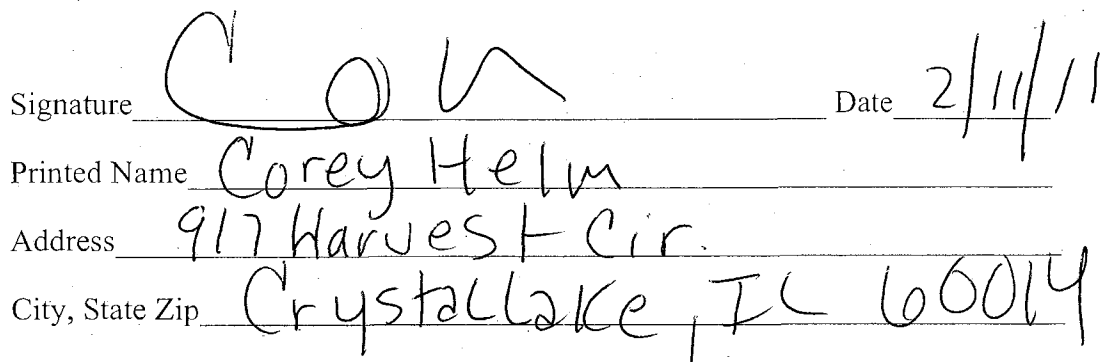 Signature Date 2/11/11
Printed Name Corey Helm
Address 917 Harvest Cir.
City, State Zip Crystal Lake, IL 60014